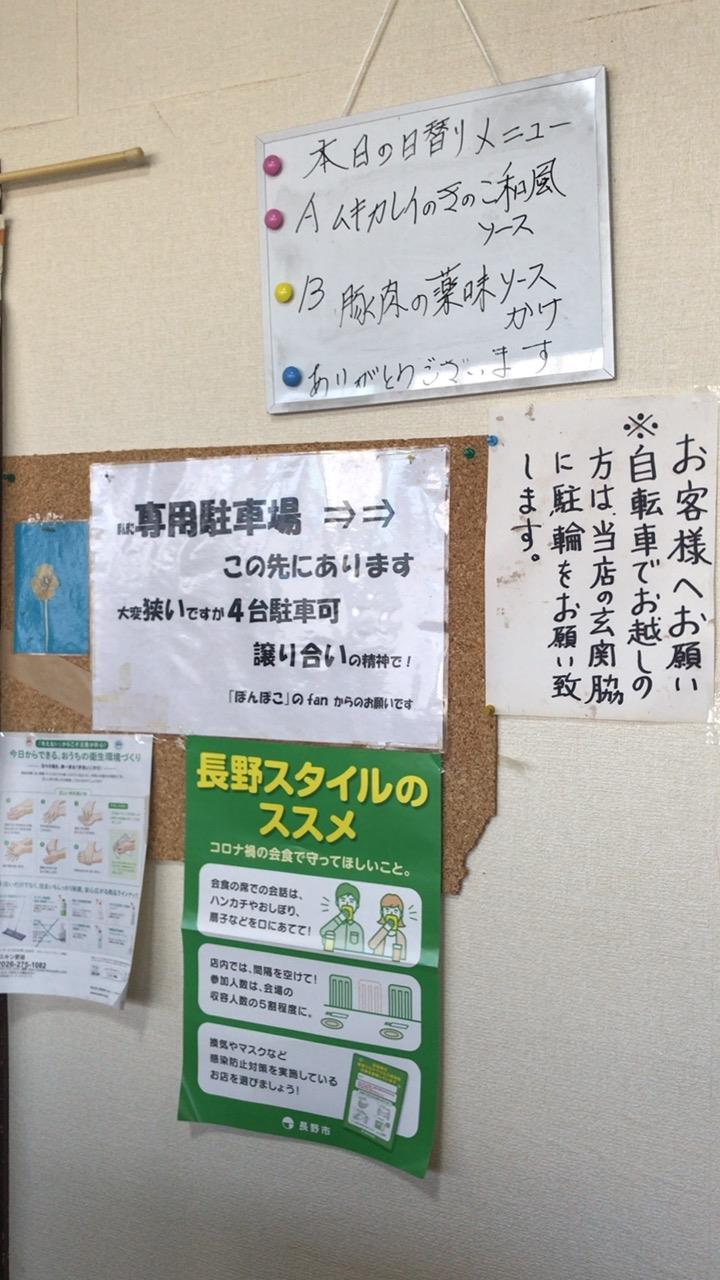 本日の日替リメニュー
A ムキカレイのきのこ和風
ソース
B 豚肉の薬味ソース
かけ
ありがとうございます
お客様へお願い
※自転車でお越しの
方は当店の玄関脇
に駐輪をお願い致
します。
専用駐車場 ⇒⇒
この先にあります
大変狭いですが4台駐車可
譲り合いの精神で!
「ぽんぽこ」の fan からのお願いです
今日からできる、おうちの衛生環境づくり
026-275-1082
長野スタイルの
ススメ
コロナ禍の会食で守ってほしいこと。
会食の席での会話は、
ハンカチやおしぼり、
扇子などを口にあてて!
店内では、間隔を空けて!
参加人数は、会場の
収容人数の5割程度に。
換気やマスクなど
感染防止対策を実施している
お店を選びましょう!
長野市